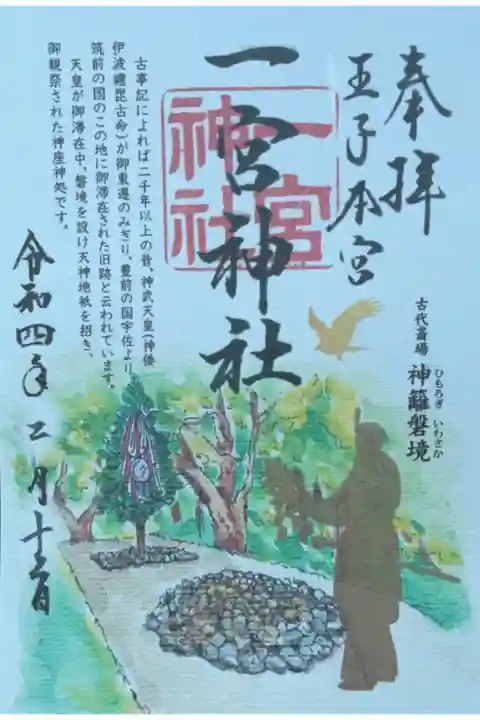 奉拝
王子本宮
古代斎場 神籬磐境
ひもろぎ いわさか
一宮神社
一宮
神社
古事記によれば二千年以上の昔、神武天皇(神倭
伊波禮毘古命)が御東遷のみぎり、豊前の国宇佐より
筑前の国のこの地に御滞在された旧跡と云われています。
天皇が御滞在中、磐境を設け天神地祇を招き、
御親祭された神座神処です。
令和四年二月十二日